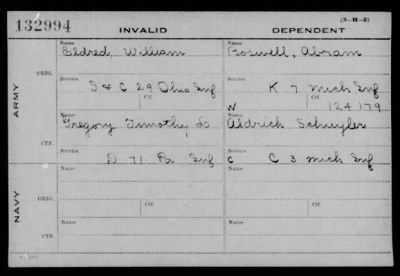 132994 INVALID DEPENDENT (3-H-3)
Name Name
Eldred, William Roswell, Abram
ARMY
ORIG. Service Service
S & C 29 Ohio Inf K 7 Mich Inf
Ctf. Ctf.
W 124179
Name Name
Gregory Timothy S Aldrich Schuyler
CTF. Service Service
D 71 Pa Inf C C 3 Mich Inf
NAVY
Name Name
ORIG. Ctf. Ctf.
Name Name
CTF.